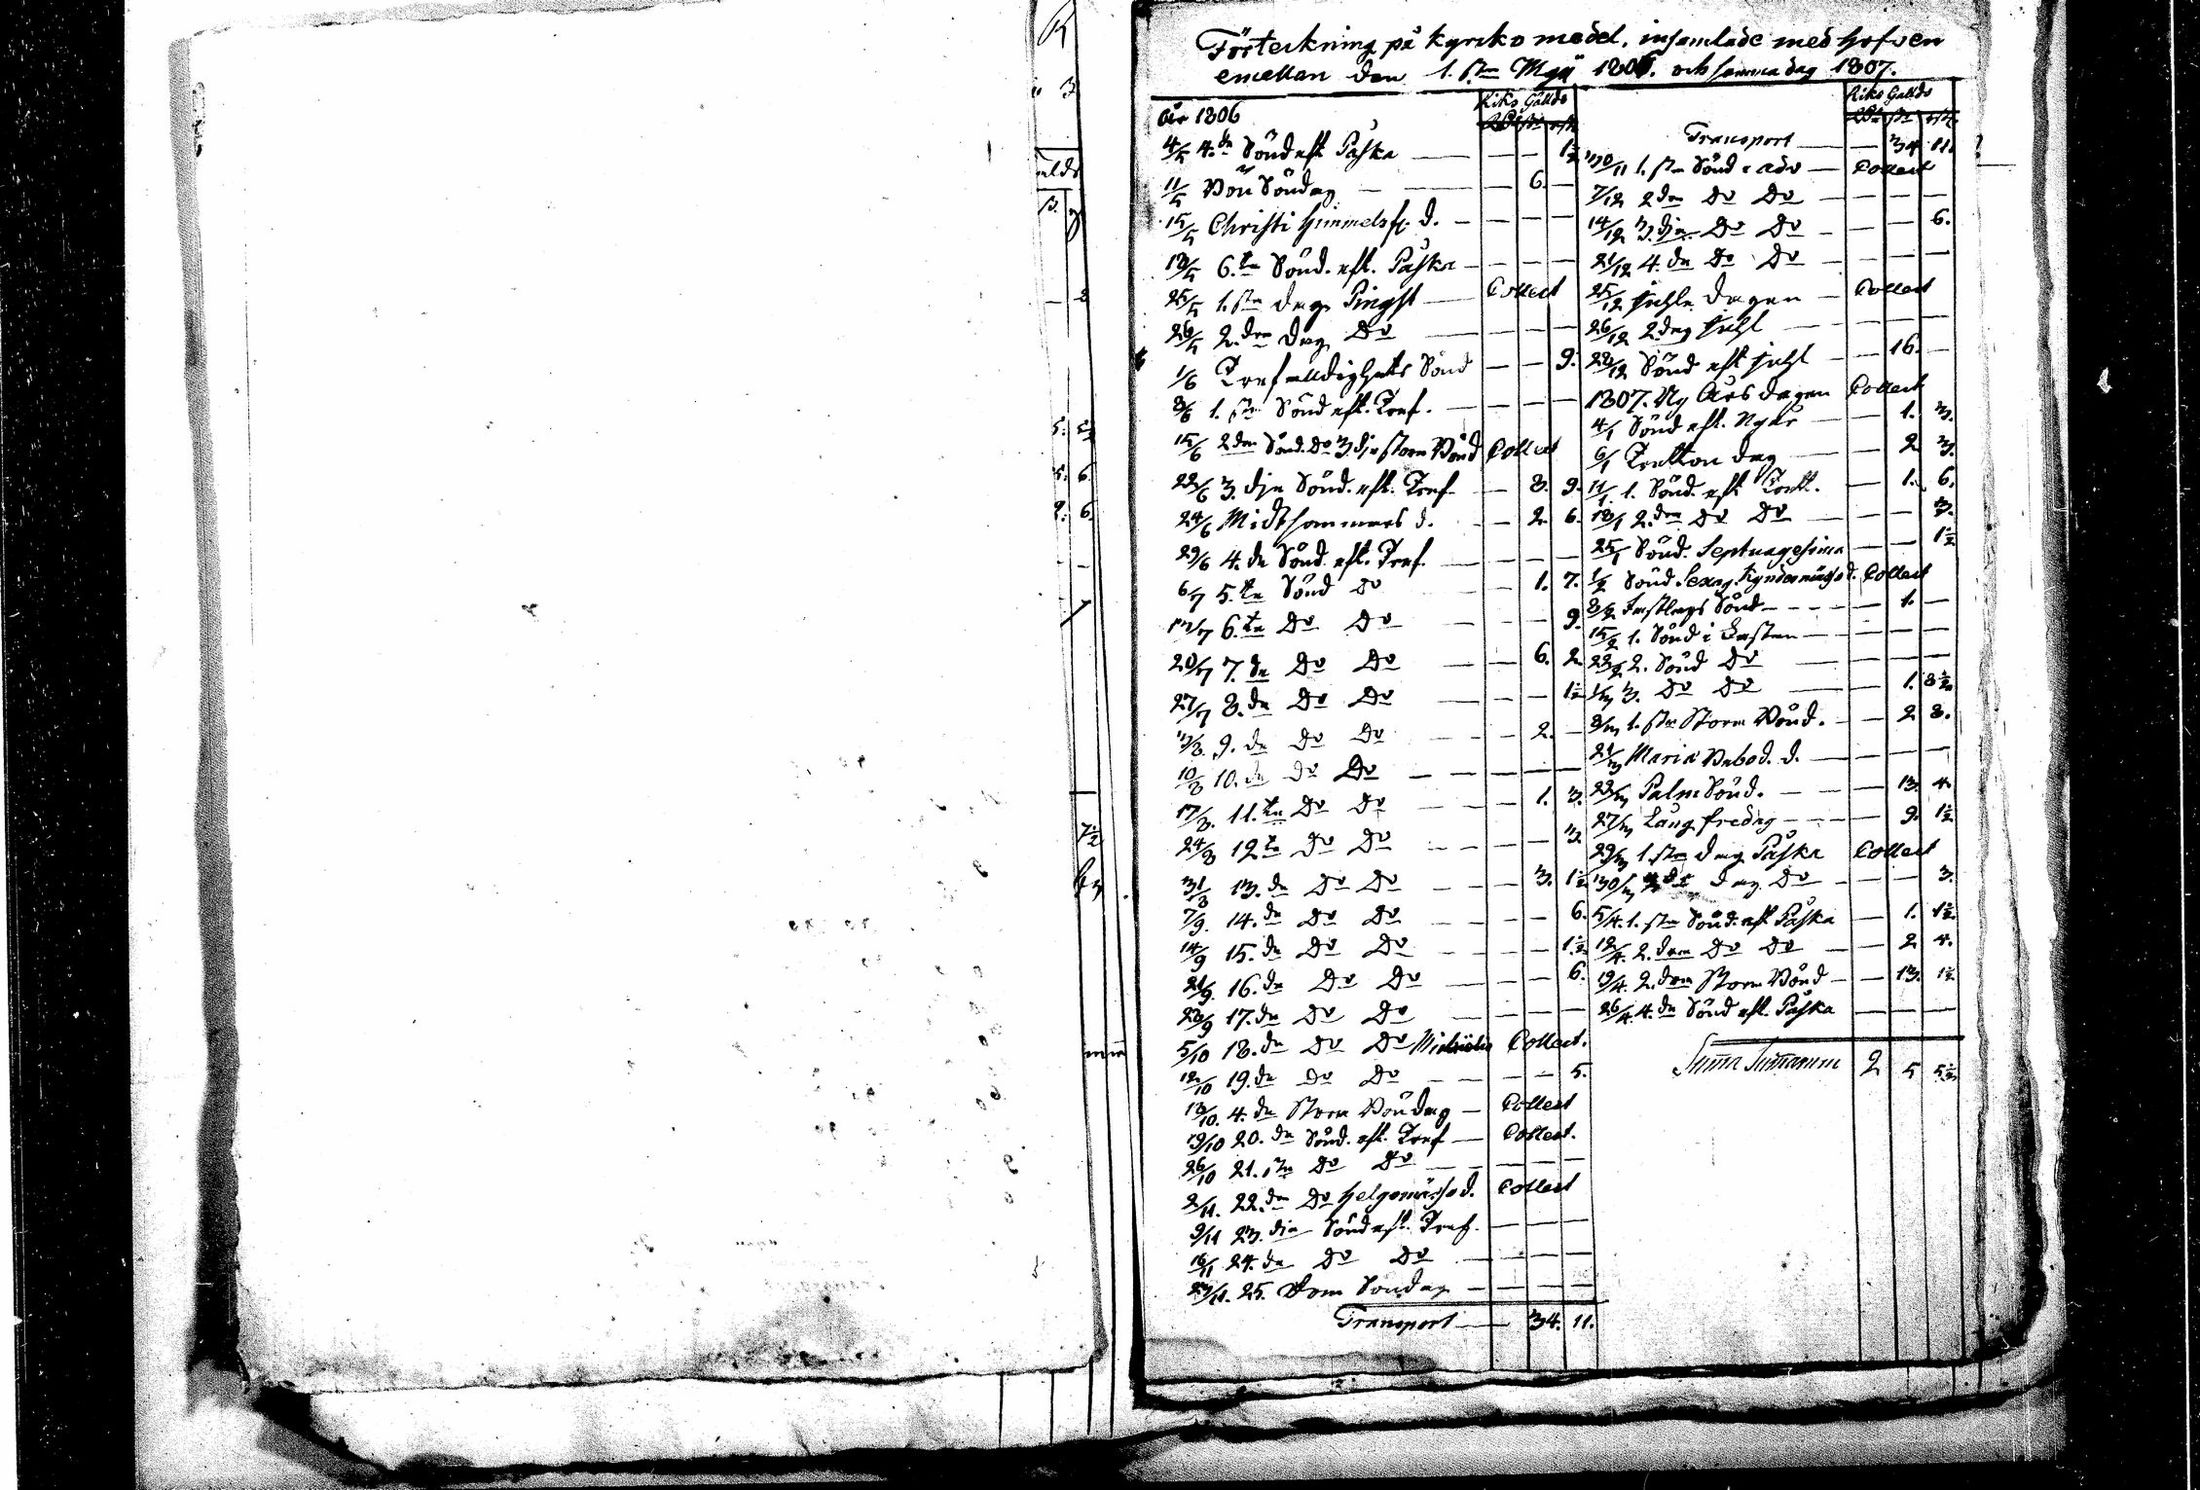 Förteckning på kyrko medel, insamlade med hofven
emellan den 1.sta Maji 1806. och samma dag 1807.
År 1806 Riks Gällds
Rdr sk. rst.
4/5 4.de Sönd eft Påska — — — 1½
11/5 Bön Söndag — — 6. —
15/5 Christi Himmelsf. d. — — —
18/5 6.te Sönd. eft. Påska — — —
25/5 1.sta dag Pingst — Collect
26/5 2.dra dag Do — — —
1/6 Trefalldighets Sönd — — 9.
8/6 1.sta Sönd eft. Tref. — — —
15/6 2dra Sönd. Do 3.dje stora Bönd Collect
22/6 3.dje Sönd. eft. Tref. — 8. 9.
24/6 Midsommars d. — — 2. 6.
29/6 4.de Sönd. eft. Tref. — — —
6/7 5.te Sönd Do — 1. 7.
13/7 6.te Do Do — — 9.
20/7 7.de Do Do — — 6. 2.
27/7 8.de Do Do — — — 1½
3/8. 9.de Do Do — — 2. —
10/8 10.de Do Do — — — —
17/8. 11.te Do Do — — 1. 3.
24/8 12.te Do Do — — — 3.
31/8 13.de Do Do — — 3. 1½
7/9. 14.de Do Do — — — 6.
14/9 15.de Do Do — — — 1½
21/9. 16.de Do Do — — — 6.
28/9 17.de Do Do — — — —
5/10 18.de Do Do Michaelis Collect.
12/10 19.de Do Do — — — 5.
13/10. 4.de Stora Böndag — Collect
19/10 20.de Sönd. eft. Tref — Collect.
26/10 21.sta Do Do — — — —
2/11. 22.dra Do Helgomässod. Collect
9/11 23.dje Sönd eft. Tref. — — —
16/11 24.de Do Do — — — —
23/11. 25. Dom Söndag — — — —
Transport — 34. 11.
Riks Gällds
Rdr sk. rst.
Transport — — 34 11.
30/11 1.sta Sönd i adv — Collect
7/12 2dra Do Do — — — —
14/12 3.dje Do Do — — — 6.
21/12 4.de Do Do — — — —
25/12 Juhle dagen — Collect
26/12 2.dag Juhl — — — —
28/12 Sönd eft Juhl — — 16. —
1807. Ny Års dagen Collect
4/1 Sönd eft. Nyår — — 1. 3.
6/1 Tretton dag — — 2 3.
11/1. 1. Sönd. eft Trett. — — 1. 6.
18/1 2.dra Do Do — — — 3.
25/1 Sönd. Septuagesima — — 1½
1/2 Sönd Sexag. Kyndersmässod. Collect
8/2 Fastlags Sönd — — — 1. —
15/2 1. Sönd i Fastan — — — —
22/2 2. Sönd Do — — — —
1/3 3. Do Do — — 1. 8½
8/3 1.sta Stora Bönd. — — 2 8.
21/3 Mariæ Bebod. d. — — — —
22/3 Palm Sönd. — — — 13. 4.
27/3 Lång fredag — — — 9. 1½
29/3 1.sta dag Påska Collect
30/3 2dra dag Do — — — 3.
5/4. 1.sta Sönd. eft Påska — 1. 1½.
12/4. 2.dra Do Do — — 2 4.
19/4. 2.dra Stora Bönd — — 13. 1½
26/4. 4.de Sönd eft. Påska — — — —
Summa Summarum 2 5 5½